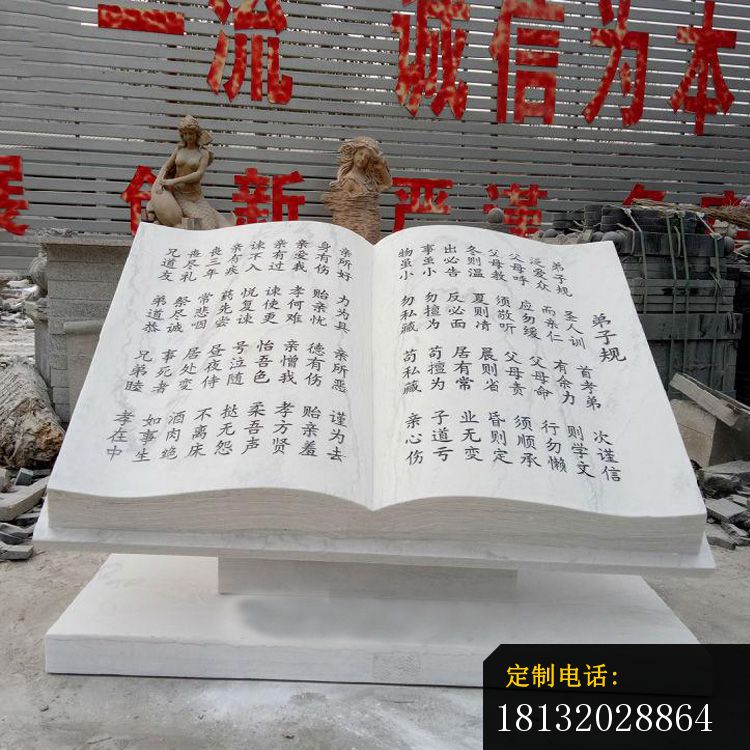 一流 诚信为本
展 创新 严谨
弟子规
弟子规 圣人训 首孝弟 次谨信
泛爱众 而亲仁 有余力 则学文
父母呼 应勿缓 父母命 行勿懒
父母教 须敬听 父母责 须顺承
冬则温 夏则凊 晨则省 昏则定
出必告 反必面 居有常 业无变
事虽小 勿擅为 苟擅为 子道亏
物虽小 勿私藏 苟私藏 亲心伤
亲所好 力为具 亲所恶 谨为去
身有伤 贻亲忧 德有伤 贻亲羞
亲爱我 孝何难 亲憎我 孝方贤
亲有过 谏使更 怡吾色 柔吾声
谏不入 悦复谏 号泣随 挞无怨
亲有疾 药先尝 昼夜侍 不离床
丧三年 常悲咽 居处变 酒肉绝
丧尽礼 祭尽诚 事死者 如事生
兄道友 弟道恭 兄弟睦 孝在中
定制电话:
18132028864